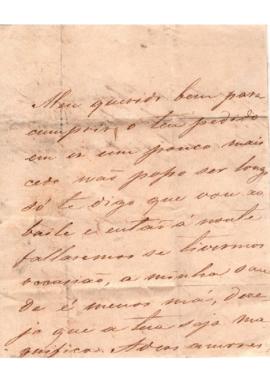 Meu querido bem para
cumprir o teu pedido
em ir um pouco mais
cedo não posso ser longo
só te digo que vou ao
baile e entaõ á noute
fallaremos se tivermos
occasiaõ, a minha sau
de é menos má, dese
jo que a tua seja ma
gnifica. Adeus amores